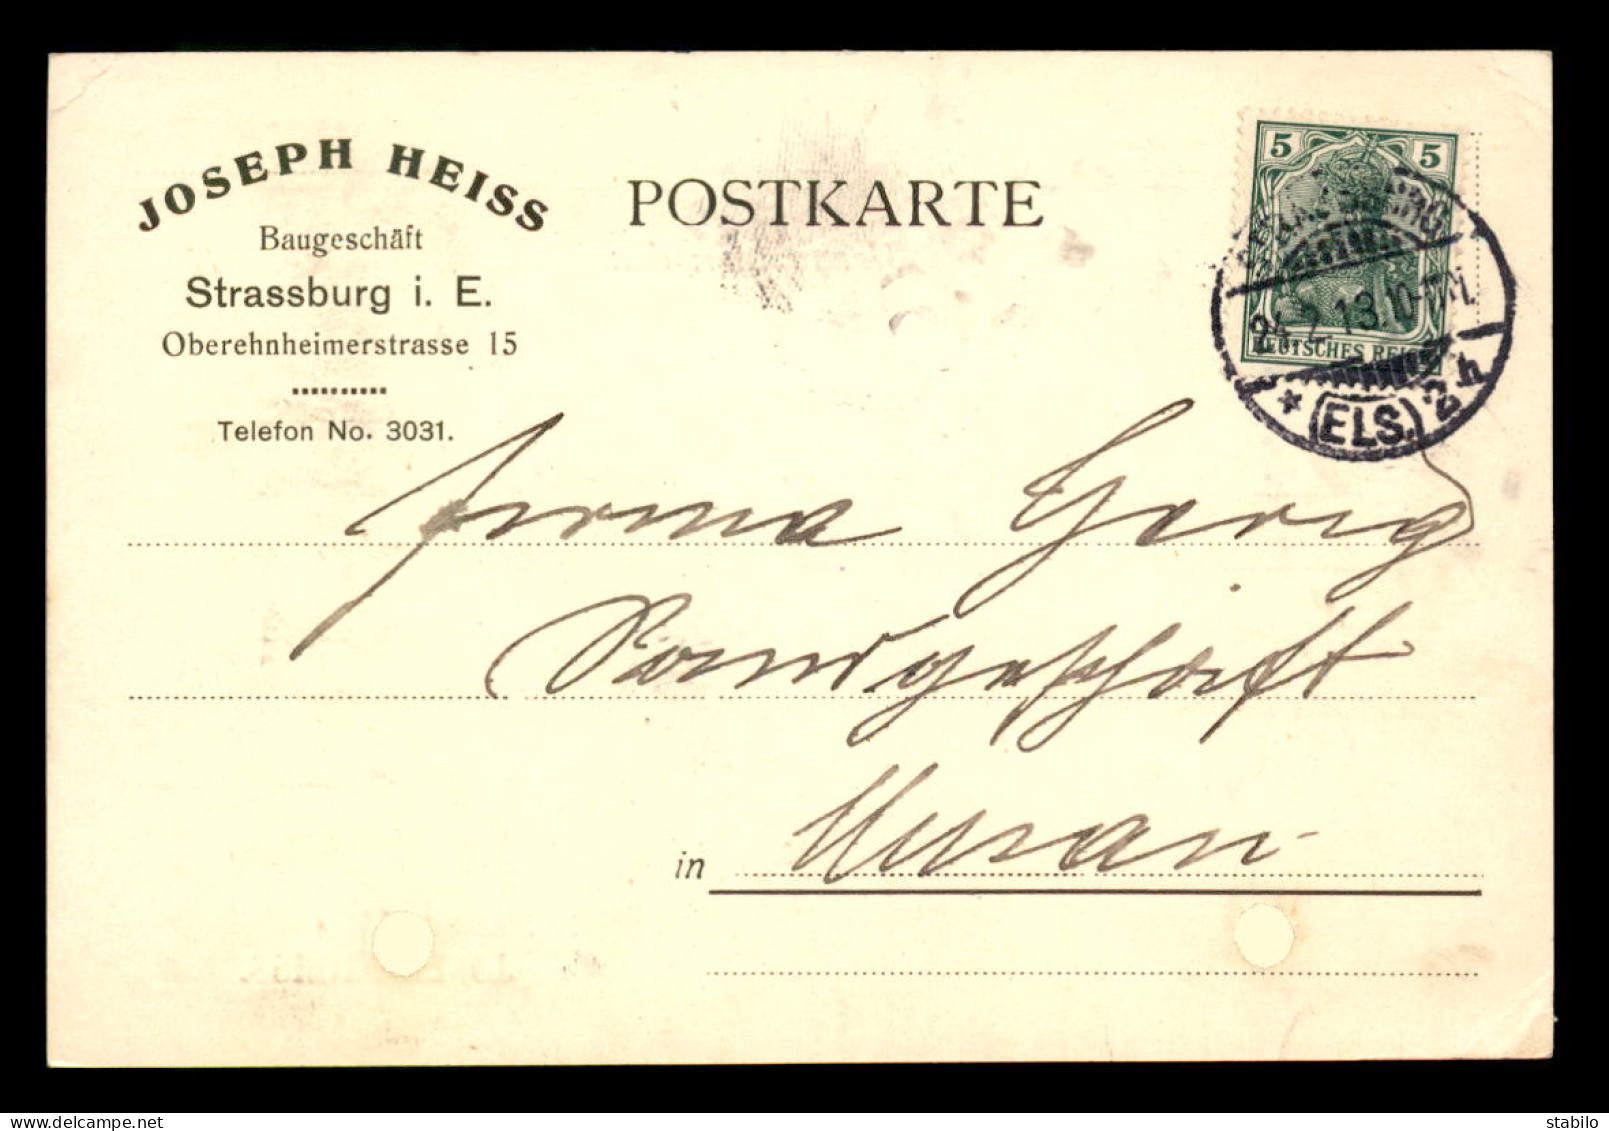 JOSEPH HEISS
Baugeschäft
Strassburg i. E.
Oberehnheimerstrasse 15
Telefon No. 3031.
POSTKARTE
5 5
DEUTSCHES REICH
24.2.13.10-11N.
* (ELS.) 2 h
Firma Georg
Sandgeschäft
in
delcampe.net
stabilo